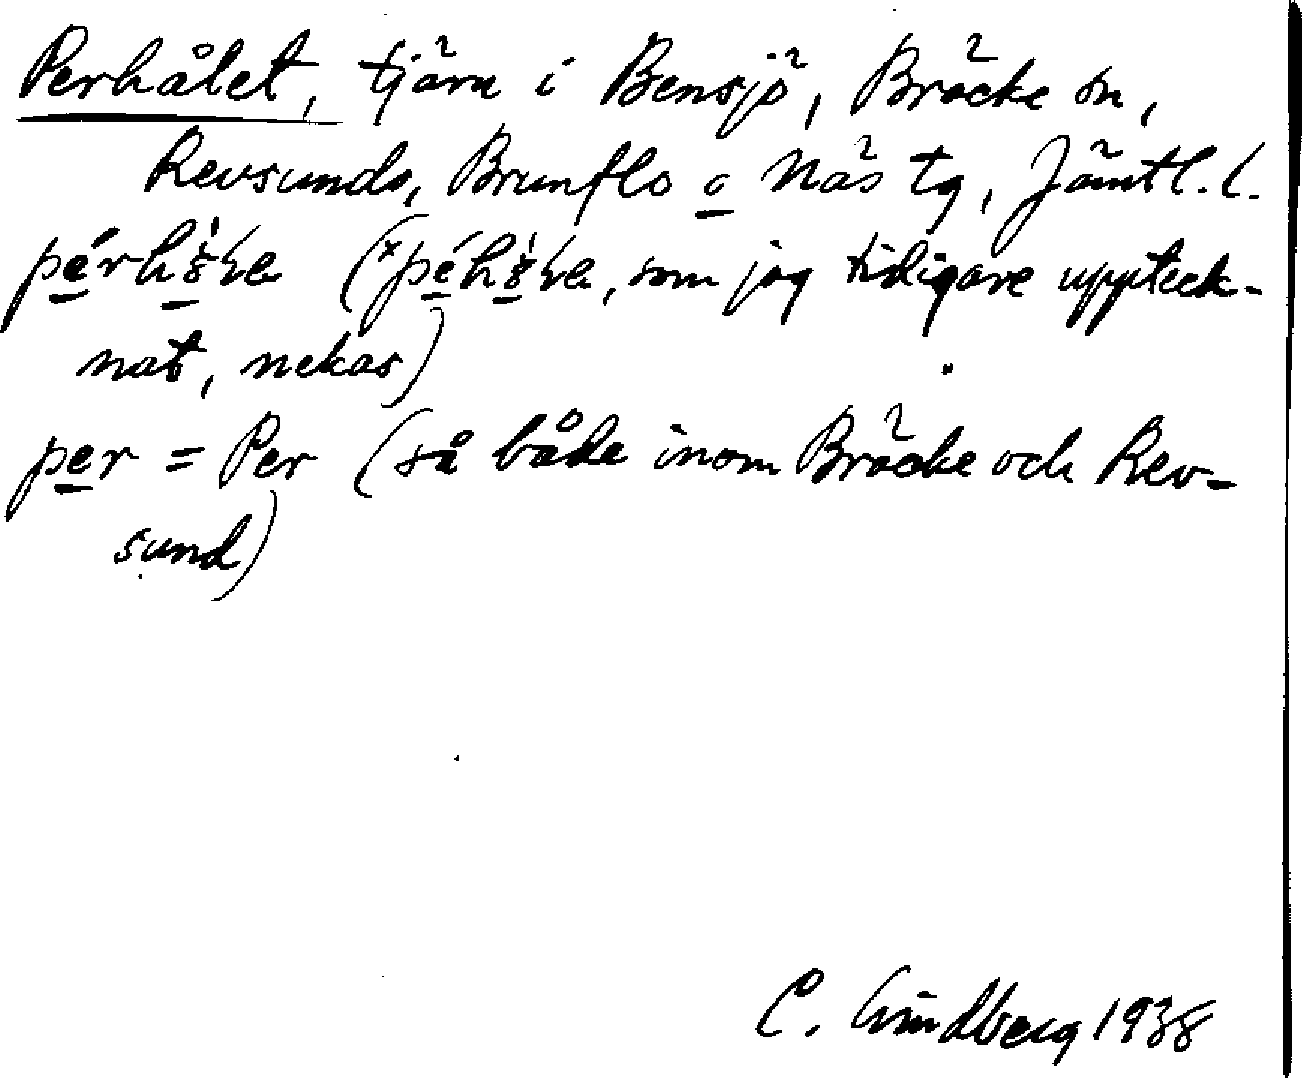 Perhålet, tjärn i Bensjö, Bräcke sn,
Revsunds, Brunflo o Näs tg, Jämtl. l.
som jag tidigare uppteck-
nat, nekas)
per = Per (så både inom Bräcke och Rev-
sund)
C. Lindberg 1938